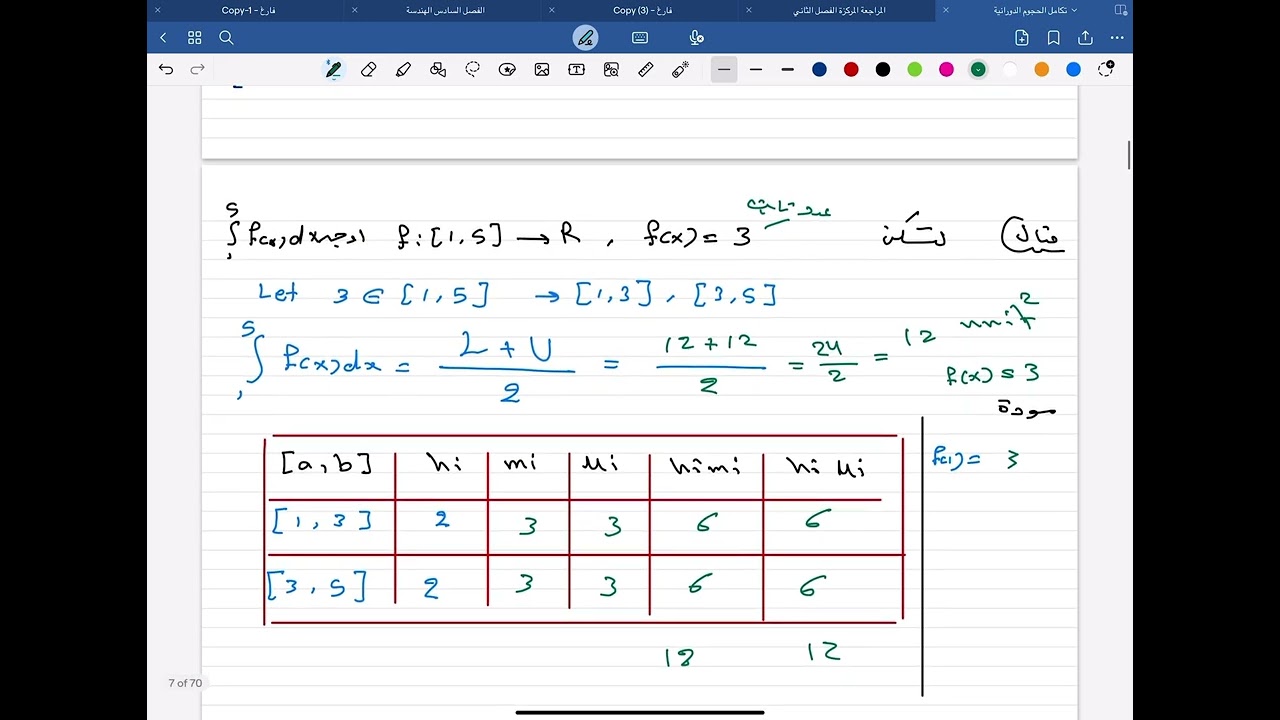 فارغ - Copy-1
الفصل السادس الهندسة
فارغ - Copy (3)
المراجعة المركزة الفصل الثاني
تكامل الحجوم الدورانية
دالة ثابتة
مثال لتكن f(x) = 3 , f : [1,5] → R اوجد ∫₁⁵ f(x)dx
Let 3 ∈ [1,5] → [1,3] , [3,5]
∫₁⁵ f(x)dx = (L + U)/2 = (12 + 12)/2 = 24/2 = 12 unit²
f(x) = 3
[a,b] hi mi Mi hi mi hi Mi
f(1) = 3
[1,3] 2 3 3 6 6
[3,5] 2 3 3 6 6
12 12
7 of 70